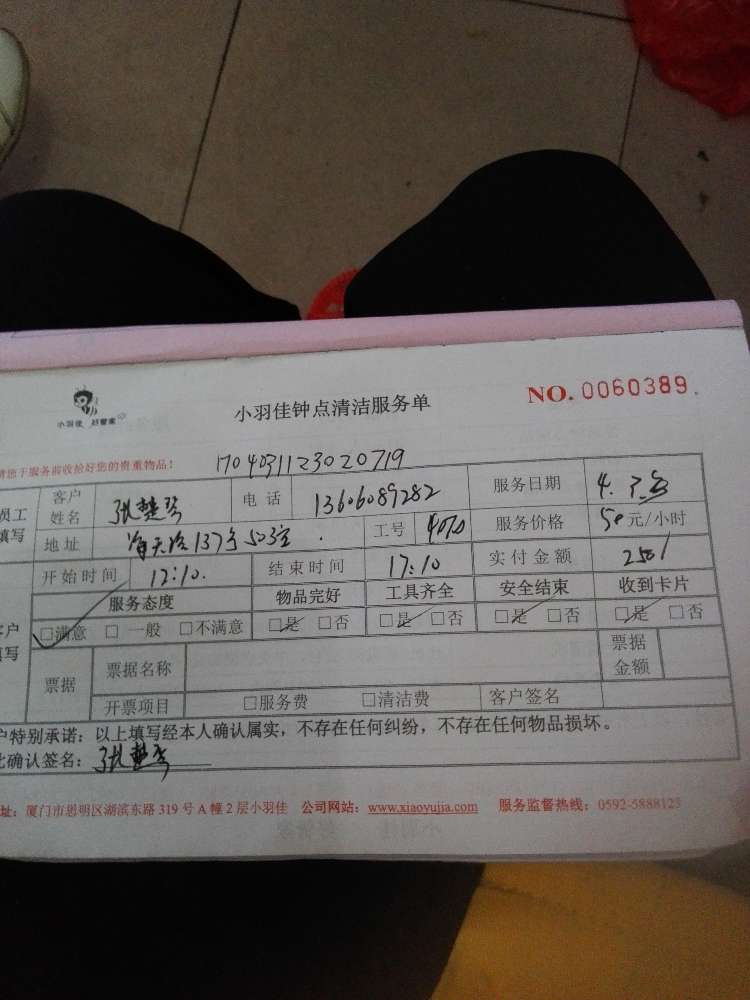 小羽佳 好管家
小羽佳钟点清洁服务单
NO. 0060389
请您于服务前收拾好您的贵重物品!
1704031123020719
员工填写 客户姓名 张楚琴 电话 13606089282 服务日期 4.
地址 137号503室 工号 服务价格 50元/小时
开始时间 12:10. 结束时间 17:10 实付金额 250/
客户填写 服务态度 物品完好 工具齐全 安全结束 收到卡片
☑满意 □一般 □不满意 ☑是 □否 ☑是 □否 ☑是 □否 ☑是 □否
票据 票据名称 票据金额
开票项目 □服务费 □清洁费 客户签名
户特别承诺：以上填写经本人确认属实，不存在任何纠纷，不存在任何物品损坏。
此确认签名：张楚琴
址：厦门市思明区湖滨东路319号A幢2层小羽佳 公司网站：www.xiaoyujia.com 服务监督热线：0592-5888123